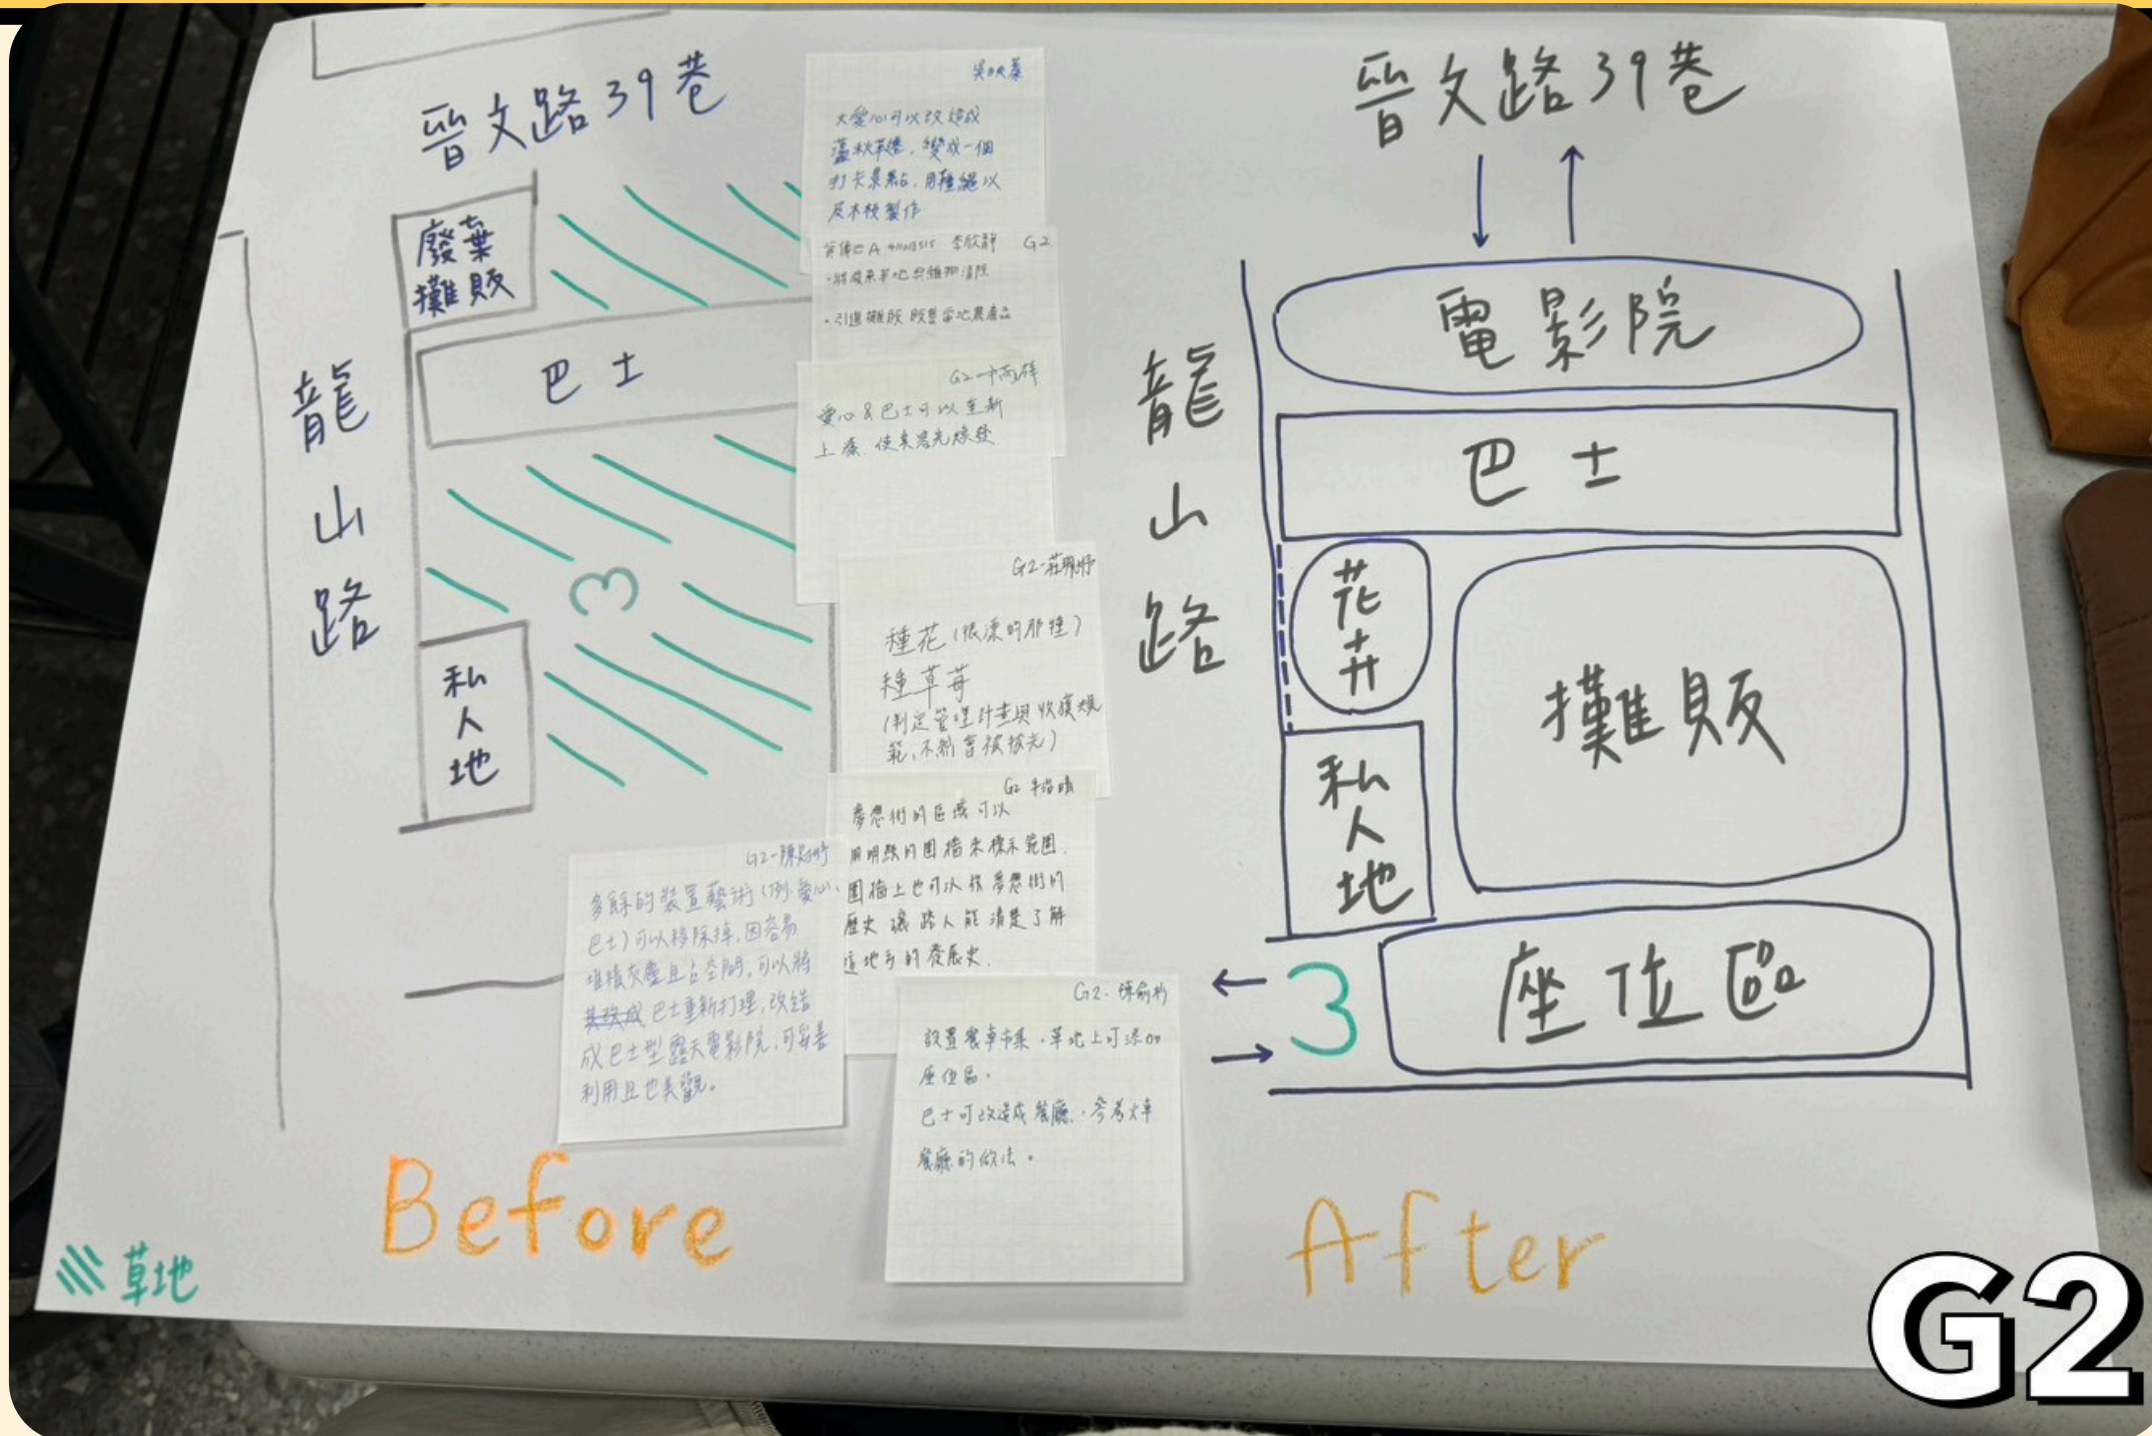 晉文路39巷
廢棄
攤販
巴士
龍山路
私人地
3
Before
草地
大愛心可以改造成
盪秋千,變成一個
打卡景點,用麻繩以
及木板製作
G2
・引進攤販 販賣當地農產品
愛心&巴士可以重新
上漆,使其容光煥發
種花(很漂的那種)
種草莓
(制定管理計畫與收穫規
範,不然會被拔光)
夢想街的區域可以
用明顯的圍牆來標示範圍,
圍牆上也可以後夢想街的
歷史 讓路人能清楚了解
這地方的發展史.
多餘的裝置藝術(例:愛心、
巴士)可以移除掉,因容易
堆積灰塵且占空間,可以將
巴士重新打理,改造
成巴士型露天電影院,可妥善
利用且也美觀。
放置餐車市集,草地上可添加
座位區。
巴士可改造成餐廳,參考火車
餐廳的做法。
晉文路39巷
電影院
巴士
龍山路
花卉
攤販
私人地
3
座位區
After
G2